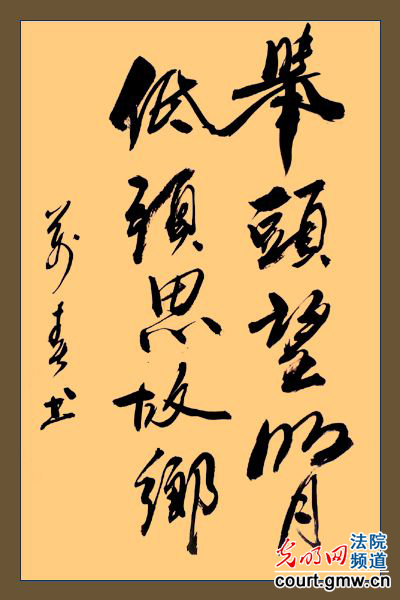 舉頭望明月
低頭思故鄉
萬春书
光明网
法院
频道
court.gmw.cn